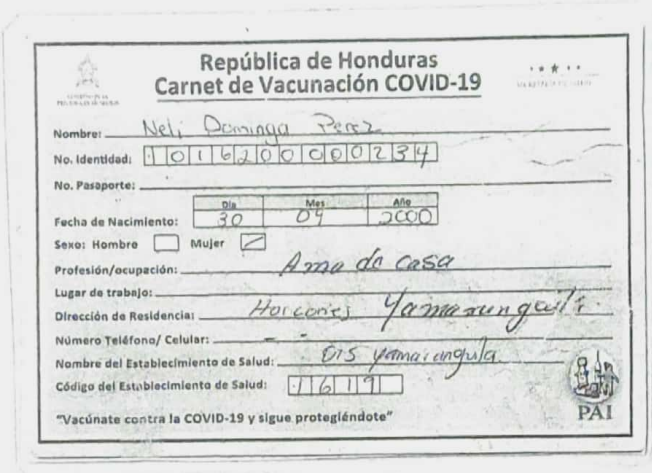 República de Honduras
Carnet de Vacunación COVID-19
Nombre: Neli Dominga Perez
No. Identidad: 1016200000234
No. Pasaporte:
Día Mes Año
Fecha de Nacimiento: 30 04 2000
Sexo: Hombre Mujer
Profesión/ocupación: Ama de casa
Lugar de trabajo:
Dirección de Residencia: Horcones
Número Teléfono/ Celular: - -
Nombre del Establecimiento de Salud:
Código del Establecimiento de Salud: 1619
"Vacúnate contra la COVID-19 y sigue protegiéndote"
PAI